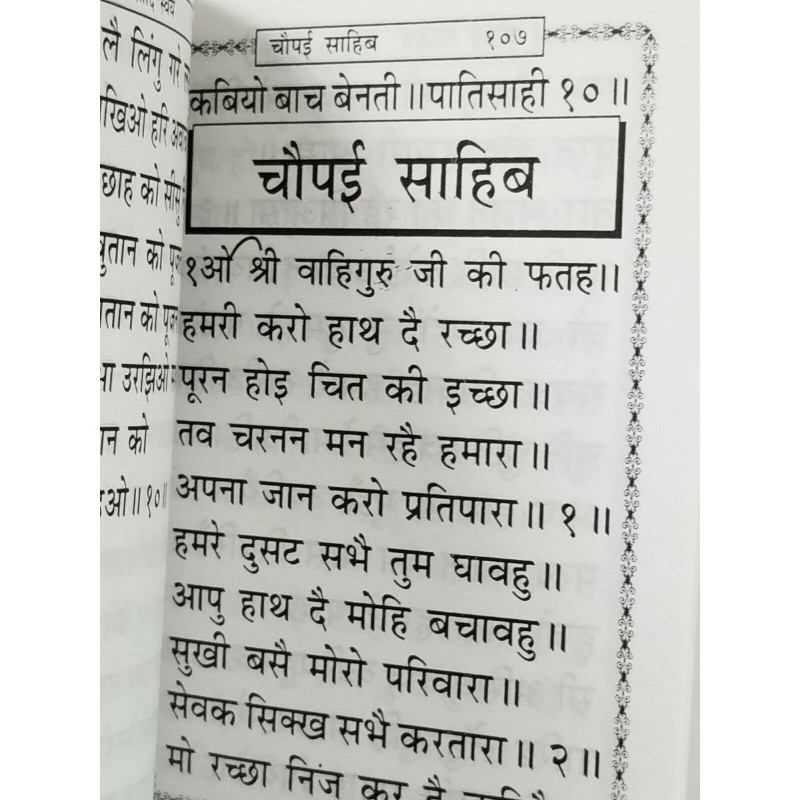 लै लिंगु गरे
हरि
छाह को सीसु
को
तान को
उरझिओ
को
॥१०॥
चौपई साहिब १०७
कबियो बाच बेनती॥पातिसाही १०॥
चौपई साहिब
१ओ श्री वाहिगुरु जी की फतह॥
हमरी करो हाथ दै रच्छा॥
पूरन होइ चित की इच्छा॥
तव चरनन मन रहै हमारा॥
अपना जान करो प्रतिपारा॥ १ ॥
हमरे दुसट सभै तुम घावहु॥
आपु हाथ दै मोहि बचावहु॥
सुखी बसै मोरो परिवारा॥
सेवक सिक्ख सभै करतारा॥ २ ॥
मो रच्छा निज कर